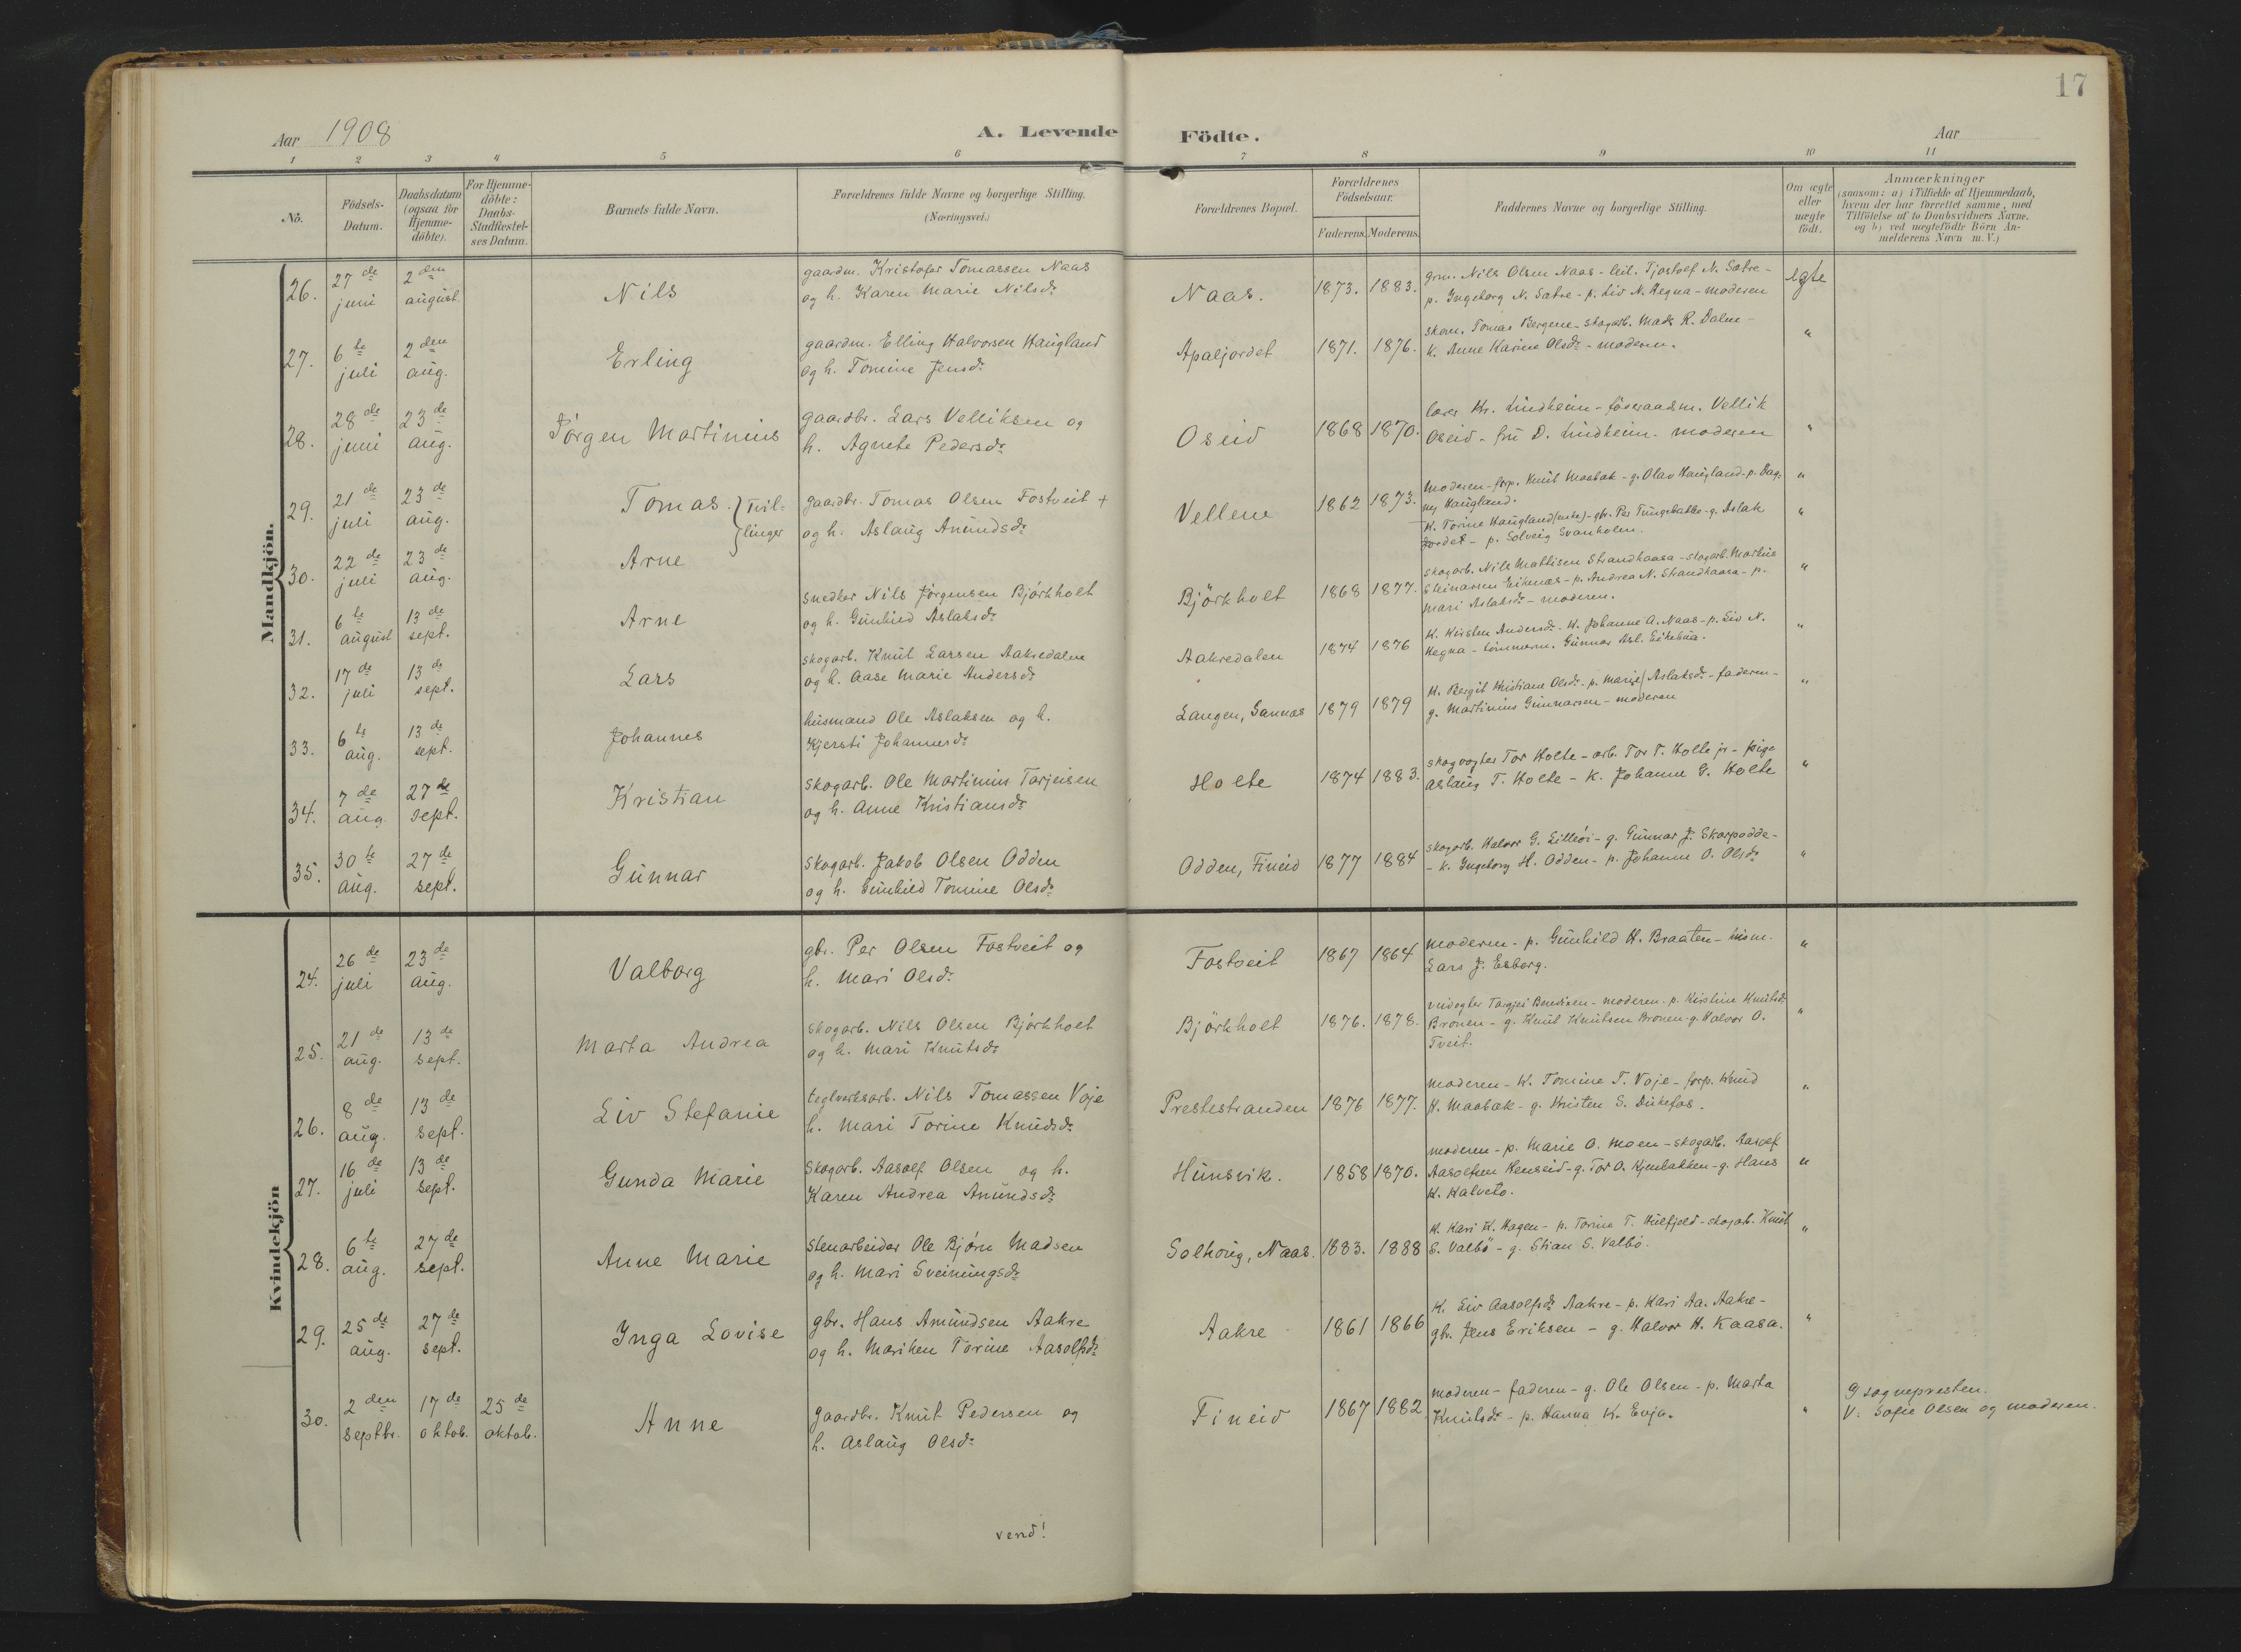 17
Aar 1908
A. Levende Födte.
Aar
1 2 3 4 5 6 7 8 9 10 11
No.
Födsels-
Datum.
Daabsdatum
(ogsaa for
Hjemme-
döbte).
For Hjemme-
döbte:
Daabs-
Stadfæstel-
ses Datum.
Barnets fulde Navn.
Forældrenes fulde Navne og borgerlige Stilling.
(Næringsvei.)
Forældrenes Bopæl.
Forældrenes
Födselsaar.
Faderens. Moderens.
Faddernes Navne og borgerlige Stilling.
Om ægte
eller
uægte
födt.
Anmærkninger
(saasom: a) i Tilfælde af Hjemmedaab,
hvem der har forrettet samme, med
Tilföielse af to Daabsvidners Navne.
og b) ved uægtefödte Börn An-
melderens Navn m. V.)
Mandkjön.
26.
27de
juni
2den
august.
Nils
gaardm. Kristofer Tomassen Naas
og h. Karen Marie Nilsdr
Naas.
1873. 1883.
grm. Nils Olsen Naas - leil. Tjostolf N. Sætre -
p. Ingeborg N. Sætre - p. Liv N. Hegna - moderen
Egte
27.
6te
juli
2den
aug.
Erling
gaardm. Elling Halvorsen Haugland
og h. Tomine Jensdr
Apaljordet
1871. 1876.
skom. Tomas Bergene - skogarb. Mads R. Dalne -
k. Anne Karine Olsdr - moderen.
"
28.
28de
juni
23de
aug.
Jørgen Martinius
gaardbr. Lars Velliksen og
h. Agnete Pedersdr
Oseid
1868 1870.
lærer Kr. Lindheim - föderaadsm. Vellik
Oseid - fru D. Lindheim. moderen
"
29.
21de
juli
23de
aug.
Tomas. } Tvil-
linger
gaardbr. Tomas Olsen Fostveit +
og h. Aslaug Anundsdr
Vellene
1862 1873.
moderen - forp. Knut Maabæk - g. Olav Haugland - p. Dag-
ny Haugland.
"
30.
22de
juli
23de
aug.
Arne
K. Torine Haugland (enke) - gbr. Per Tungebakke - g. Aslak
Jordet - p. Solveig Svanholm.
"
31.
6te
august
13de
sept.
Arne
snedker Nils Jørgensen Bjørkholt
og h. Gunhild Aslaksdr
Björkholt
1868 1877.
skogarb. Nils Mattisen Strandkaasa - skogarb. Martius
Steinarsen Eikenæs - p. Andrea N. Strandkaasa - p.
Mari Aslaksdr - moderen.
"
32.
17de
juli
13de
sept.
Lars
skogarb. Knut Larsen Aakredalen
og h. Aase Marie Andersdr
Aakredalen
1874 1876
K. Kirsten Andersdr. K. Johanne A. Naas - p. Liv N.
Hegna - tömmerm. Gunnar Asl. Eikebua.
"
33.
6te
aug.
13de
sept.
Johannes
husmand Ole Aslaksen og h.
Kjersti Johannesdr
Langen, Sannæs
1879 1879
K. Bergit Kristiane Olsdr. p. Marie Aslaksdr - faderen -
g. Martinius Gunnarsen - moderen
"
34.
7de
aug.
27de
sept.
Kristian
skogarb. Ole Martinius Tarjeisen
og h. Anne Kristiansdr
Holte
1874 1883.
skogvogter Tor Holte - arb. Tor T. Holte jr - pige
Aslaug T. Holte - K. Johanne G. Holte
"
35.
30te
aug.
27de
sept.
Gunnar
skogarb. Jakob Olsen Odden
og h. Gunhild Tomine Olsdr
Odden, Fineid
1877 1884
skogarb. Halvor G. Lilleøi - g. Gunnar J. Skarpodde -
- k. Ingeborg H. Odden - p. Johanne O. Olsdr
"
Kvindekjön
24.
26de
juli
23de
aug.
Valborg
gbr. Per Olsen Fostveit og
h. Mari Olsdr.
Fostveit
1867 1864
moderen - p. Gunhild H. Braaten - husm.
Lars J. Esborg.
"
25.
21de
aug.
13de
sept.
Marta Andrea
skogarb. Nils Olsen Björkholt
og h. Mari Knutsdr
Björkholt
1876. 1878.
Targjei - moderen. p. Kirstine Knutsdr
Bronen - g. Knut Knutsen Bronen - g. Halvor O.
Tveit.
"
26.
8de
aug.
13de
sept.
Liv Stefanie
teglverksarb. Nils Tomassen Voje
h. Mari Torine Knudsdr
Prestestranden
1876 1877.
moderen - K. Tomine T. Voje - forp. Knud
K. Maabæk - g. Kristen S. Dukefos.
"
27.
16de
juli
13de
sept.
Gunda Marie
Skogarb. Aasolf Olsen og h.
Karen Andrea Anundsdr
Hunsvik.
1858 1870.
moderen - p. Marie O. Moen - skogarb. Aasolf
Aasolfsen Henseid - g. Tor O. Kjenbakken - g. Hans
K. Kalveto.
"
28.
6te
aug.
27de
sept.
Anne Marie
Stenarbeider Ole Bjørn Madsen
og h. Mari Sveinungsdr
Solhoug, Naas.
1883. 1888
K. Kari K. Hagen - p. Torine T. Hulfjeld - skogarb. Knut
S. Valbö - g. Stian S. Valbö.
"
29.
25de
aug.
27de
sept.
Inga Lovise
gbr. Hans Amundsen Aakre
og h. Mariken Torine Aasolfsdr
Aakre
1861 1866
K. Liv Aasolfsdr Aakre - p. Kari Aa. Aakre -
gbr. Jens Eriksen - g. Halvor H. Kaasa.
"
30.
2den
septbr.
17de
oktob.
25de
oktob.
Anne
gaardbr. Knut Pedersen og
h. Aslaug Olsdr
Fineid
1867 1882
moderen - faderen - g. Ole Olsen - p. Marta
Knutsdr - p. Hanna K. Evja.
"
sognepresten.
V: Sofie Olsen og moderen.
vend!